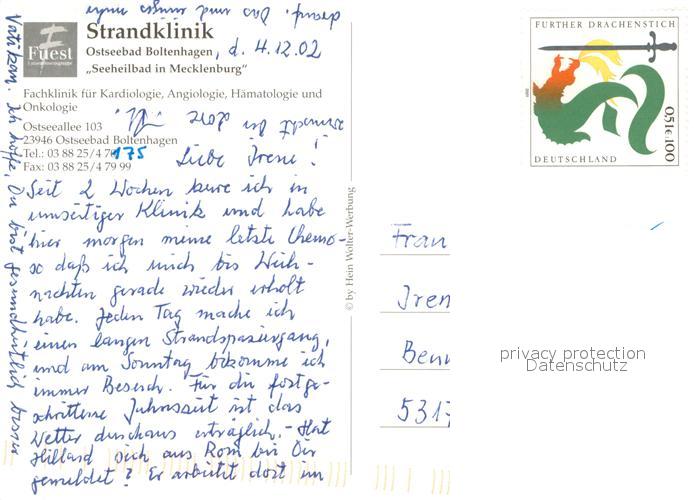 Füest
Strandklinik
Ostseebad Boltenhagen, d. 4.12.02
„Seeheilbad in Mecklenburg“
Fachklinik für Kardiologie, Angiologie, Hämatologie und
Onkologie
Ostseeallee 103
23946 Ostseebad Boltenhagen
Tel.: 03 88 25/4 7 175
Fax: 03 88 25/4 79 99
Liebe Irene!
Seit 2 Wochen kure ich in
umseitiger Klinik und habe
hier morgen meine letzte Chemo-
so daß ich mich bis Weih-
nachten gerade wieder erholt
habe. Jeden Tag mache ich
einen langen Strandspaziergang,
und am Sonntag bekomme ich
immer Besuch. Für die fortge-
schrittene Jahreszeit ist das
Wetter durchaus erträglich. - Hat
sich aus Rom bei Dir
gemeldet? Er arbeitet dort im
Vatikan. Ich hoffe, Du bist gesundheitlich
© by Hein Wolter-Werbung
FURTHER DRACHENSTICH
0,51€ 100
DEUTSCHLAND
Frau
Iren
Ben
531
privacy protection
Datenschutz